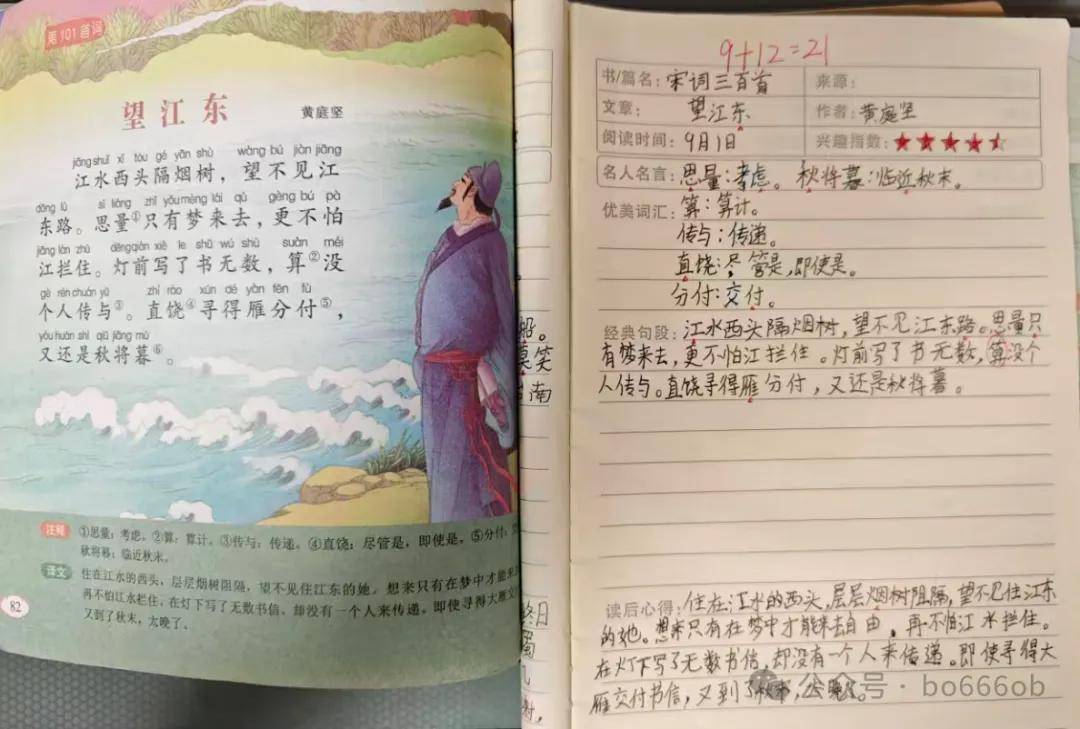 第101首词
望江东
黄庭坚
jiāng shuǐ xī tóu gé yān shù wàng bú jiàn jiāng
江水西头隔烟树，望不见江
dōng lù sī liáng zhǐ yǒu mèng lái qù gèng bú pà
东路。思量①只有梦来去，更不怕
jiāng lán zhù dēng qián xiě le shū wú shù suàn méi
江拦住。灯前写了书无数，算②没
gè rén chuán yǔ zhí ráo xún dé yàn fēn fù
个人传与③。直饶④寻得雁分付⑤，
yòu huán shì qiū jiāng mù
又还是秋将暮⑥。
注释 ①思量：考虑。②算：算计。③传与：传递。④直饶：尽管是，即使是。⑤分付：
秋将暮：临近秋末。
译文 住在江水的西头，层层烟树阻隔，望不见住江东的她。想来只有在梦中才能来
再不怕江水拦住，在灯下写了无数书信，却没有一个人来传递。即使寻得大雁交
又到了秋末，太晚了。
82
船。
莫笑
南
终日
9+12=21
书/篇名：宋词三百首 来源：
文章：望江东 作者：黄庭坚
阅读时间：9月1日 兴趣指数：★★★★
名人名言：思量：考虑。秋将暮：临近秋末。
优美词汇：算：算计。
传与：传递。
直饶：尽管是，即使是。
分付：交付。
经典句段：江水西头隔烟树，望不见江东路。思量只
有梦来去，更不怕江拦住。灯前写了书无数，算没个
人传与。直饶寻得雁分付，又还是秋将暮。
读后心得：住在江水的西头，层层烟树阻隔，望不见住江东
的她。想来只有在梦中才能来去自由，再不怕江水拦住。
在灯下写了无数书信，却没有一个人来传递。即使寻得大
雁交付书信，又到了秋末，太晚了。
公众号 · bo666ob